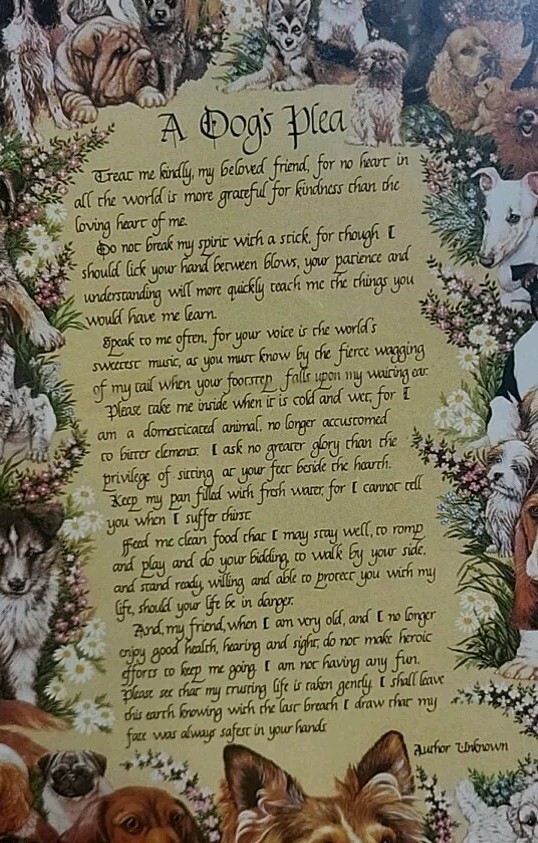 A Dog's Plea
Treat me kindly, my beloved friend, for no heart in
all the world is more grateful for kindness than the
loving heart of me.
Do not break my spirit with a stick, for though I
should lick your hand between blows, your patience and
understanding will more quickly teach me the things you
would have me learn.
Speak to me often, for your voice is the world's
sweetest music, as you must know by the fierce wagging
of my tail when your footstep falls upon my waiting ear.
Please take me inside when it is cold and wet, for I
am a domesticated animal, no longer accustomed
to bitter elements. I ask no greater glory than the
privilege of sitting at your feet beside the hearth.
Keep my pan filled with fresh water, for I cannot tell
you when I suffer thirst.
Feed me clean food that I may stay well, to romp
and play and do your bidding, to walk by your side,
and stand ready, willing and able to protect you with my
life, should your life be in danger.
And, my friend, when I am very old, and I no longer
enjoy good health, hearing and sight, do not make heroic
efforts to keep me going. I am not having any fun.
Please see that my trusting life is taken gently. I shall leave
this earth knowing with the last breath I draw that my
fate was always safest in your hands.
Author Unknown